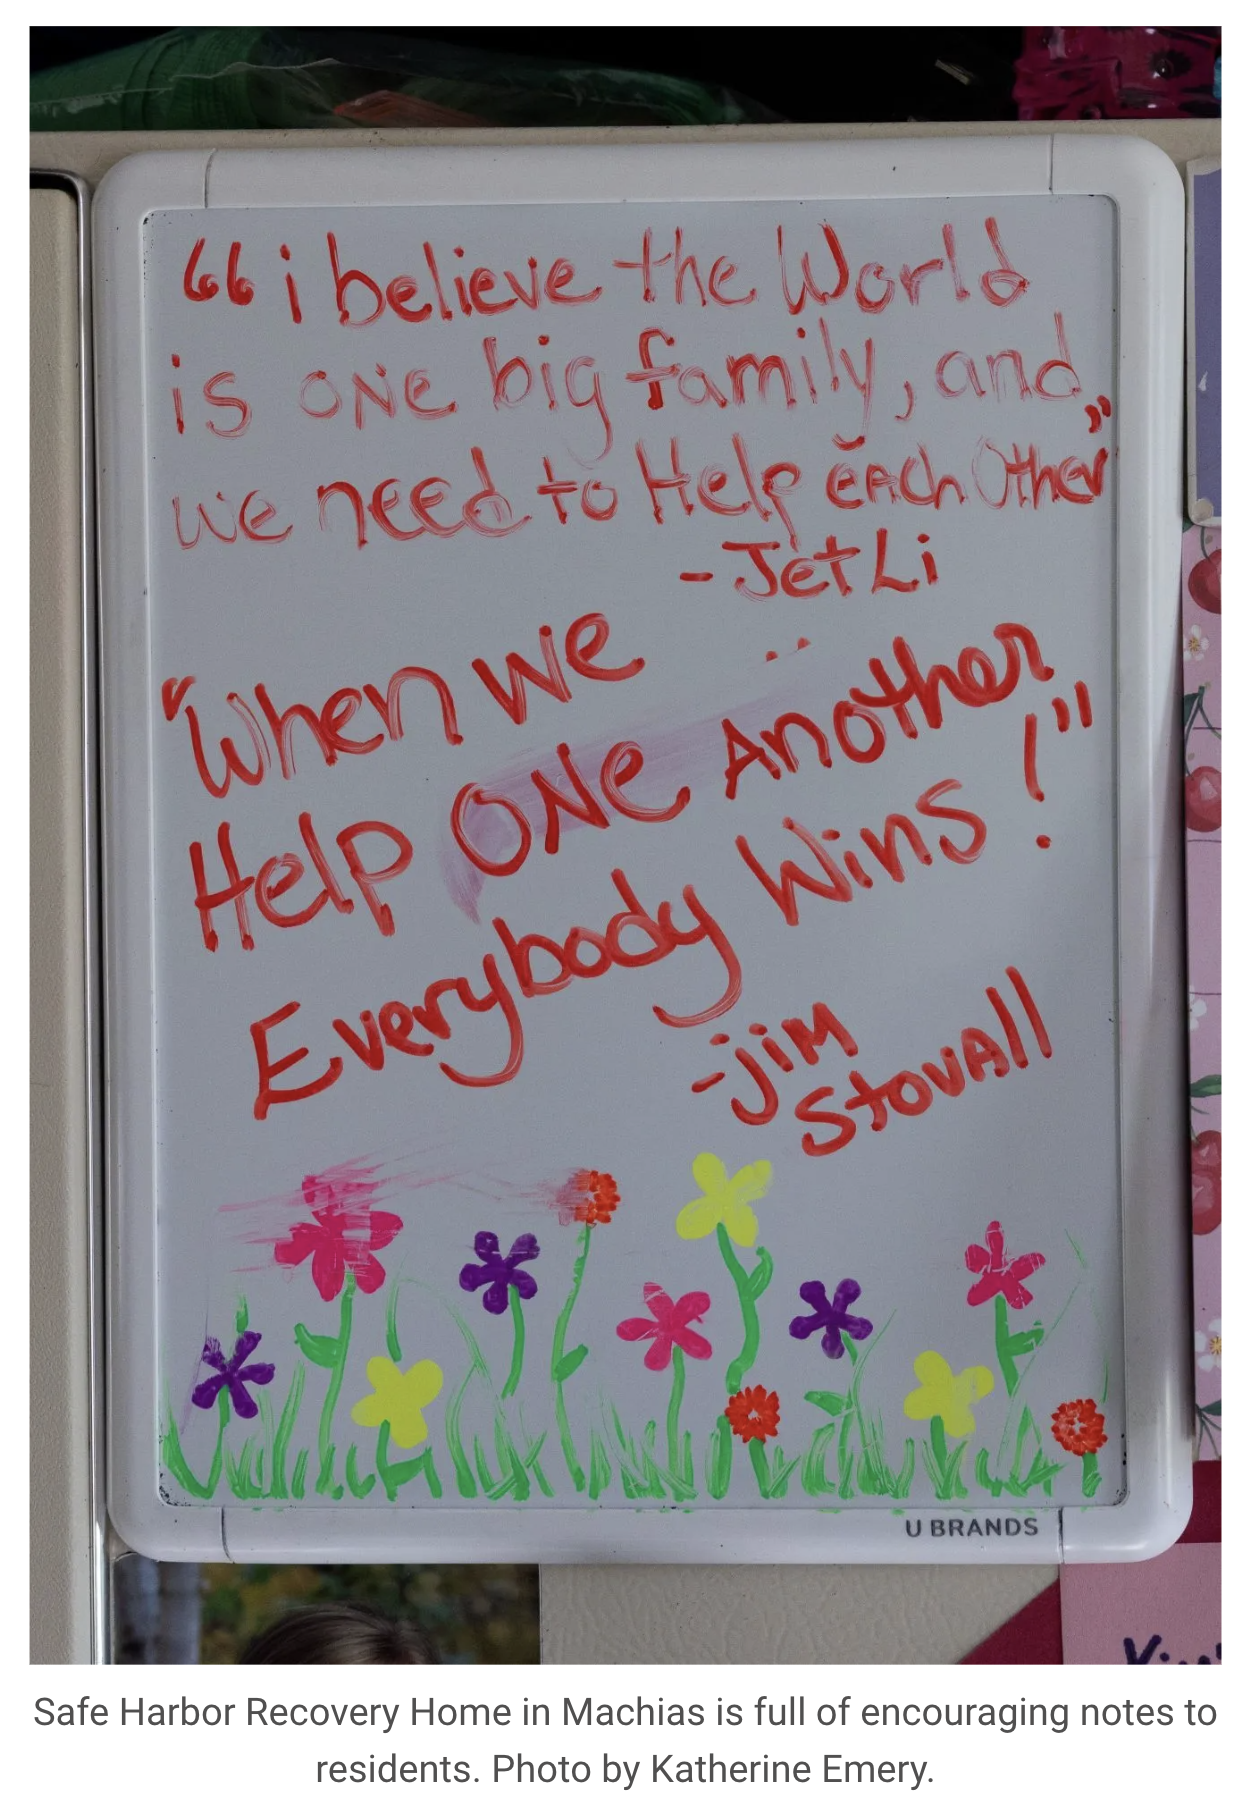 “i believe the World
is ONe big family, and
we need to Help eAch Other”
-Jet Li
"When we
Help ONe Another
Everybody Wins!"
-jim
StovAll
U BRANDS
Safe Harbor Recovery Home in Machias is full of encouraging notes to
residents. Photo by Katherine Emery.